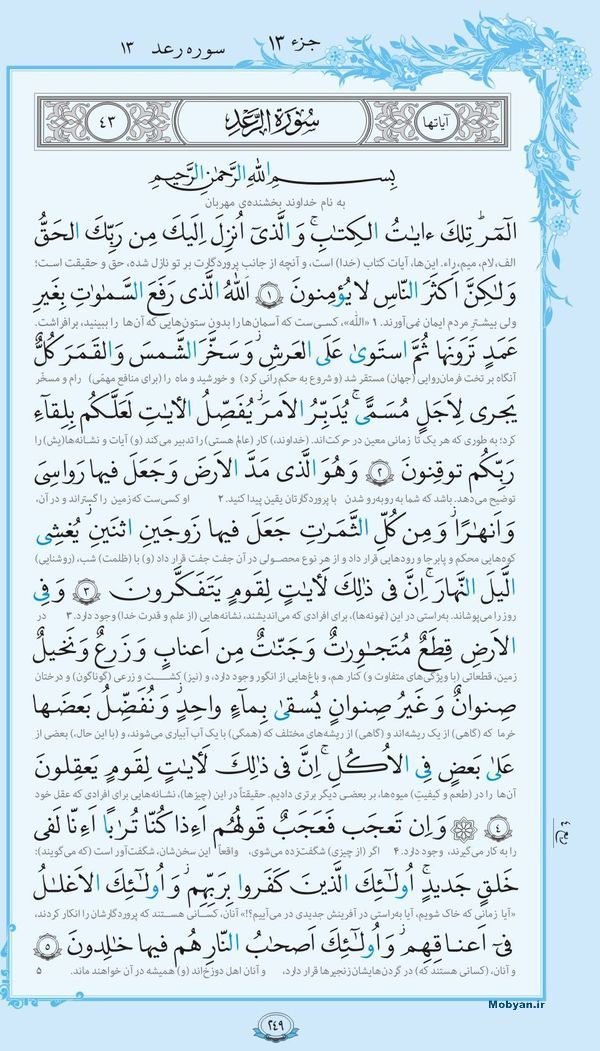 جزء ۱۳ سوره رعد ۱۳
آیاتها سُورَةُ الرَّعْدِ ٤٣
بِسمِ اللهِ الرَّحمٰنِ الرَّحيمِ
به نام خداوند بخشنده‌ی مهربان
الٓمٓرٰ ۚ تِلكَ ءايٰتُ الكِتٰبِ ۗ وَ الَّذىٓ اُنزِلَ اِلَيكَ مِن رَبِّكَ الحَقُّ
الف، لام، میم، راء. این‌ها، آیات کتاب (خدا) است، و آنچه از جانب پروردگارت بر تو نازل شده، حق و حقیقت است؛
وَلٰكِنَّ اَكثَرَ النّاسِ لا يُؤمِنونَ ١ اَللهُ الَّذى رَفَعَ السَّمٰوٰتِ بِغَيرِ
ولی بیشتر مردم ایمان نمی‌آورند. ۱ «الله»، کسی‌ست که آسمان‌ها را بدون ستون‌هایی که آن‌ها را ببینید، برافراشت.
عَمَدٍ تَرَونَها ثُمَّ استَوىٰ عَلَى العَرشِ ۖ وَ سَخَّرَ الشَّمسَ وَ القَمَرَ كُلٌّ
آنگاه بر تخت فرمان‌روایی (جهان) مستقر شد (و شروع به حکم رانی کرد) و خورشید و ماه را (برای منافع مهمّی) رام و مسخّر
يَجرى لِاَجَلٍ مُسَمًّى ۚ يُدَبِّرُ الاَمرَ يُفَصِّلُ الأٓيٰتِ لَعَلَّكُم بِلِقآءِ
کرد؛ به طوری که هر یک تا زمانی معین در حرکت‌اند. (خداوند،) کار (عالم هستی) را تدبیر می‌کند (و) آیات و نشانه‌ها(یش) را
رَبِّكُم توقِنونَ ٢ وَ هُوَ الَّذى مَدَّ الاَرضَ وَ جَعَلَ فيها رَواسِىَ
توضیح می‌دهد. باشد که شما به روبه‌رو شدن با پروردگارتان یقین پیدا کنید. ۲ او کسی‌ست که زمین را گستراند و در آن،
وَ اَنهٰرًا ۖ وَ مِن كُلِّ الثَّمَرٰتِ جَعَلَ فيها زَوجَينِ اثنَينِ ۖ يُغشِى
کوه‌هایی محکم و پابرجا و رودهایی قرار داد و از هر نوع محصولی در آن جفت جفت قرار داد (و) با (ظلمت) شب، (روشنایی)
الَّيلَ النَّهارَ ۚ اِنَّ فى ذٰلِكَ لَأٓيٰتٍ لِقَومٍ يَتَفَكَّرونَ ٣ وَ فِى
روز را می‌پوشاند. به‌راستی در این (نمونه‌ها)، برای افرادی که می‌اندیشند، نشانه‌هایی (از علم و قدرت خدا) وجود دارد. ۳ در
الاَرضِ قِطَعٌ مُتَجٰوِرٰتٌ وَ جَنّٰتٌ مِن اَعنابٍ وَ زَرعٌ وَ نَخيلٌ
زمین، قطعاتی (با ویژگی‌های متفاوت و) کنار هم، و باغ‌هایی از انگور وجود دارد، و (نیز) کشت و زرعی (گوناگون) و درختان
صِنوانٌ وَ غَيرُ صِنوانٍ يُسقىٰ بِمآءٍ واحِدٍ وَ نُفَضِّلُ بَعضَها
خرما که (گاهی) از یک ریشه‌اند و (گاهی) از ریشه‌های مختلف که (همگی) با یک آب آبیاری می‌شوند، و (با این حال،) بعضی از
عَلىٰ بَعضٍ فِى الاُكُلِ ۚ اِنَّ فى ذٰلِكَ لَأٓيٰتٍ لِقَومٍ يَعقِلونَ
آن‌ها را در (طعم و کیفیتِ) میوه‌ها، بر بعضی دیگر برتری دادیم. حقیقتاً در این (چیزها)، نشانه‌هایی برای افرادی که عقل خود
٤ وَ اِن تَعجَب فَعَجَبٌ قَولُهُم اَءِذا كُنّا تُرٰبًا اَءِنّا لَفى
را به کار می‌گیرند، وجود دارد. ۴ اگر (از چیزی) شگفت‌زده می‌شوی، واقعاً این سخن‌شان، شگفت‌آور است (که می‌گویند):
خَلقٍ جَديدٍ ۗ اُولٰٓئِكَ الَّذينَ كَفَروا بِرَبِّهِم ۖ وَ اُولٰٓئِكَ الاَغلٰلُ
«آیا زمانی که خاک شویم، آیا به‌راستی در آفرینش جدیدی در می‌آییم؟!» آنان، کسانی هستند که پروردگارشان را انکار کردند،
فىٓ اَعناقِهِم ۖ وَ اُولٰٓئِكَ اَصحٰبُ النّارِ ۖ هُم فيها خٰلِدونَ ٥
و آنان، (کسانی هستند که) در گردن‌هایشان زنجیرها قرار دارد، و آنان اهل دوزخ‌اند (و) همیشه در آن خواهند ماند. ۵
Mobyan.ir
۲۴۹